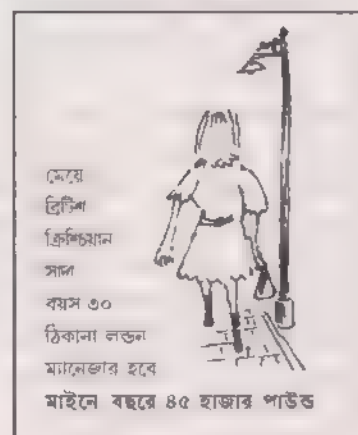 মেয়ে
ব্রিটিশ
ক্রিশ্চিয়ান
সাদা
বয়স ৩০
ঠিকানা লন্ডন
ম্যানেজার হবে
মাইনে বছরে ৪৫ হাজার পাউন্ড